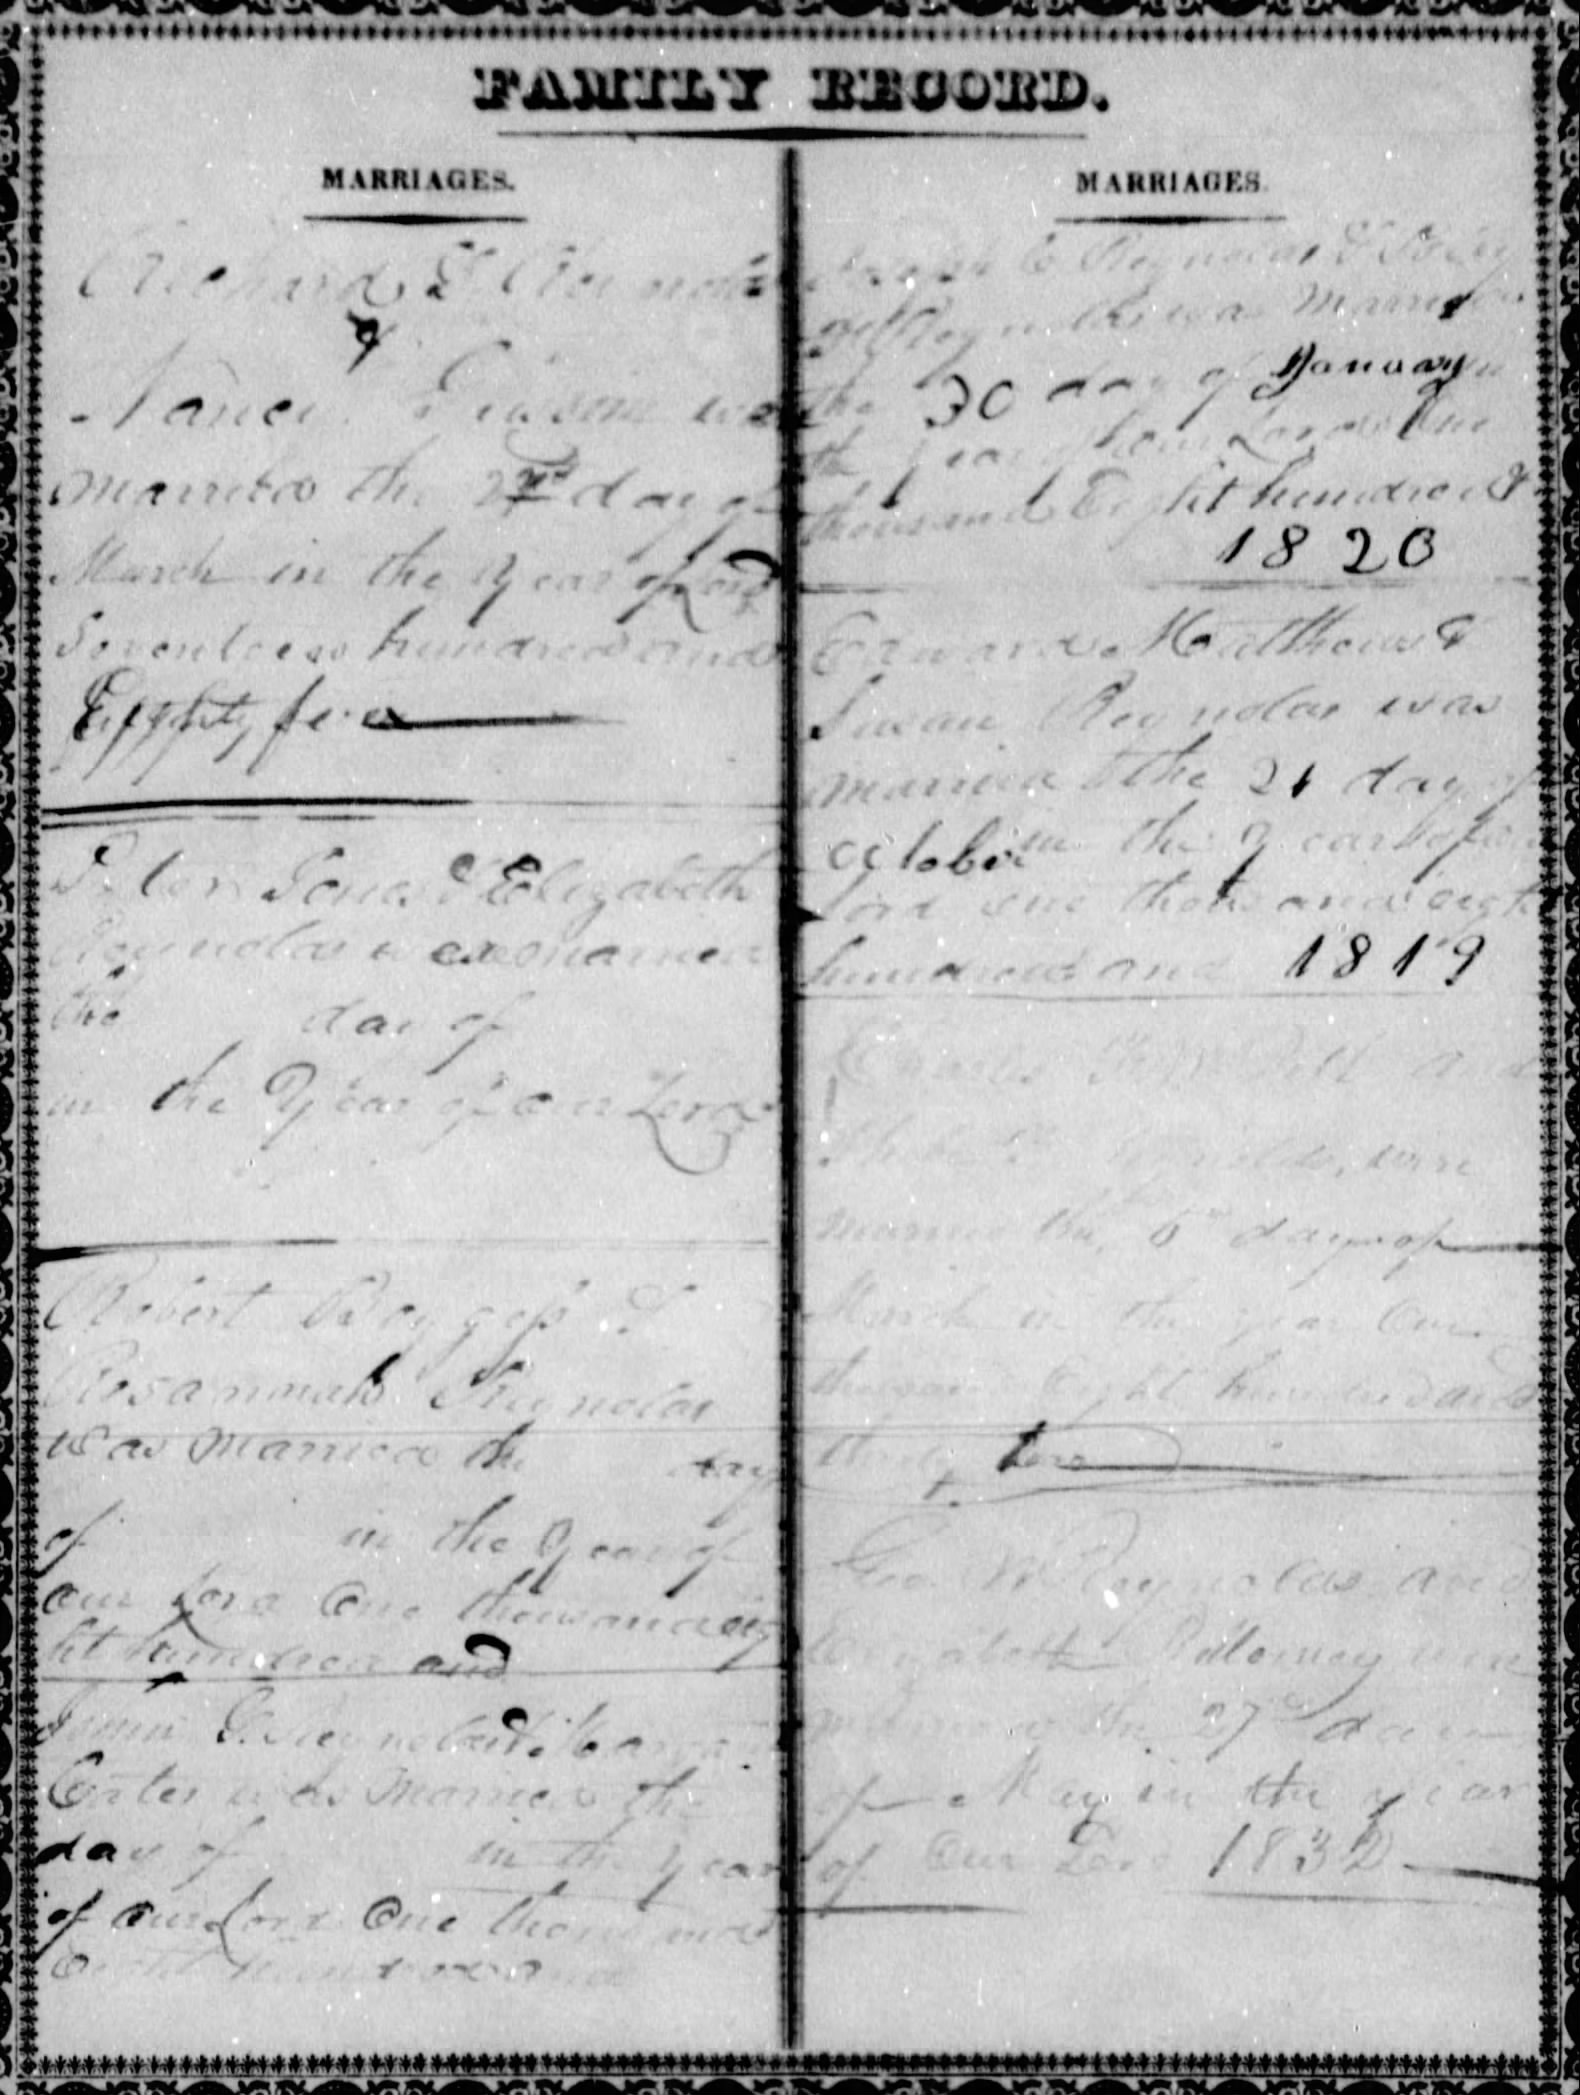 FAMILY RECORD.
MARRIAGES.
Richard
&
Nancy was
married the 2nd day of
March in the year of Lord
Seventeen hundred and
Eighty five
Peter Jones & Elizabeth
Reynolds ware married
the day of
in the Year of our Lord
Robert Boggess &
Rosannah Reynolds
was married the day
of in the year of
our Lord One thousand eig
ht hundred and
Reynolds &
Carter was married the
day of in the year
of our Lord One thousand
Eight hundred and
MARRIAGES.
Reynolds & Polly
Reynolds was married
the 30 day of January in
the year of our Lord One
thousand Eight hundred &
1820
Edward Matthews &
Susan Reynolds was
married the 21 day of
october in the year of our
lord one thousand eight
hundred and 1819
Charles and
Reynolds, were
married the 5th day of
March in the year One
thousand Eight hundred and
thirty two
Geo. W Reynolds and
Elizabeth were
married the 27th day
of May in the year
of Our Lord 1832